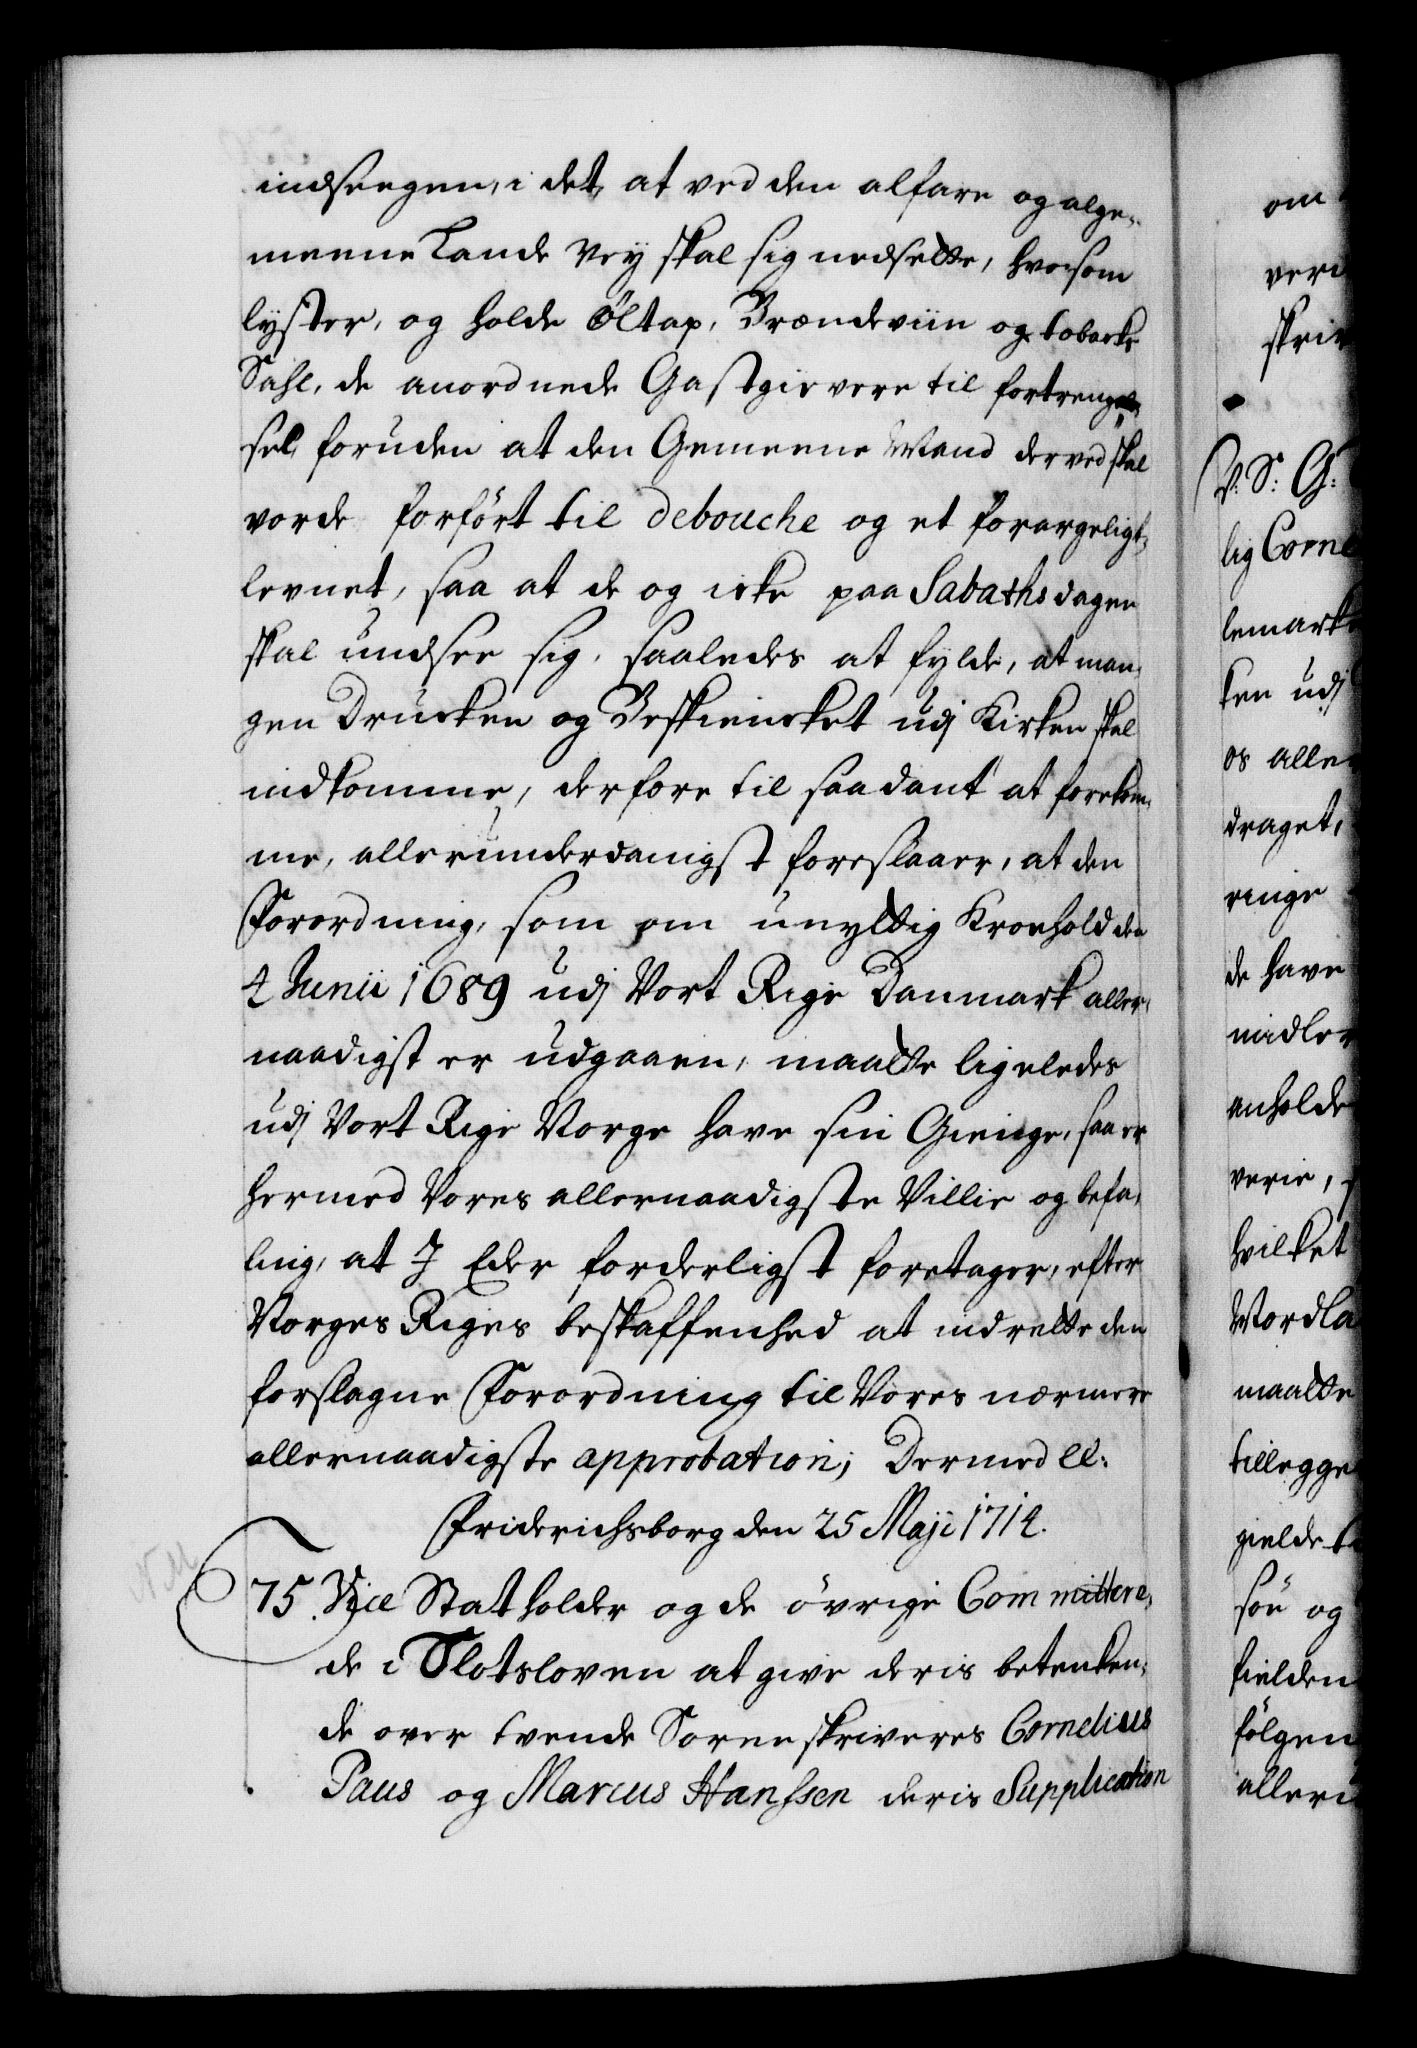 indseegen, i det, at ved den alfare og alge-
meene Lande Vey skal sig nedsette, hvosom
lyster, og holde Öltap, Brændeviin og tobacks
Sahl, de anordnede Gastgievere til fortreng-
sel, foruden at den Gemeene Mand derved skal
vorde forfört til debouche og et forargeligt
levnet, saa at de og icke paa Sabathsdagen
skal undsee sig, saaledes at fylde, at man-
gen Drucken og Beskiencket udj Kirken skal
indkomme, derfore til saadant at forekom-
me, allerunderdanigst foreslaaer, at den
Forordning, som om unyttig Kroehold den
4 Junii 1689 udj Vort Rige Danmark aller-
naadigst er udgaaen, maatte ligeledes
udj Vort Rige Norge have sin Gienge, saa er
hermed Vores allernaadigste Villie og befa-
ling, at I Eder forderligst foretager, efter
Norges Riges beskaffenhed at indrette den
forslagne Forordning til Vores nærmere
allernaadigste approbation; Dermed etc:
Friderichsborg den 25 Maji 1714.
75. Vice Statholder og de övrige Committere-
de i Slotsloven at give deris betenken-
de over tvende Sorenskriveres Cornelius
Paus og Marcus Hanssen deris Supplication
om
veri
skriv
V: S: G:
lig Corne
lemarke
ken udj
os aller
draget,
ringe
de have
midler
anholde
verie,
hvilket
Nordla
maatte
tillegge
gielde
söe og
fielden
fölgen
alleru